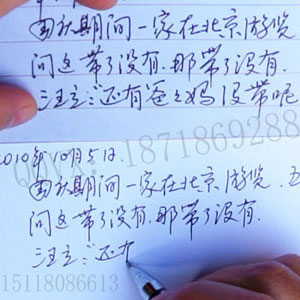 国庆期间一家在北京游览
问这带了没有.那带了没有.
汪立:还有爸爸妈没带呢
QQYX: 18718692888
2010年10月5日.
国庆期间一家在北京游览.五
问这带了没有.那带了没有.
汪立:还有
15118086613